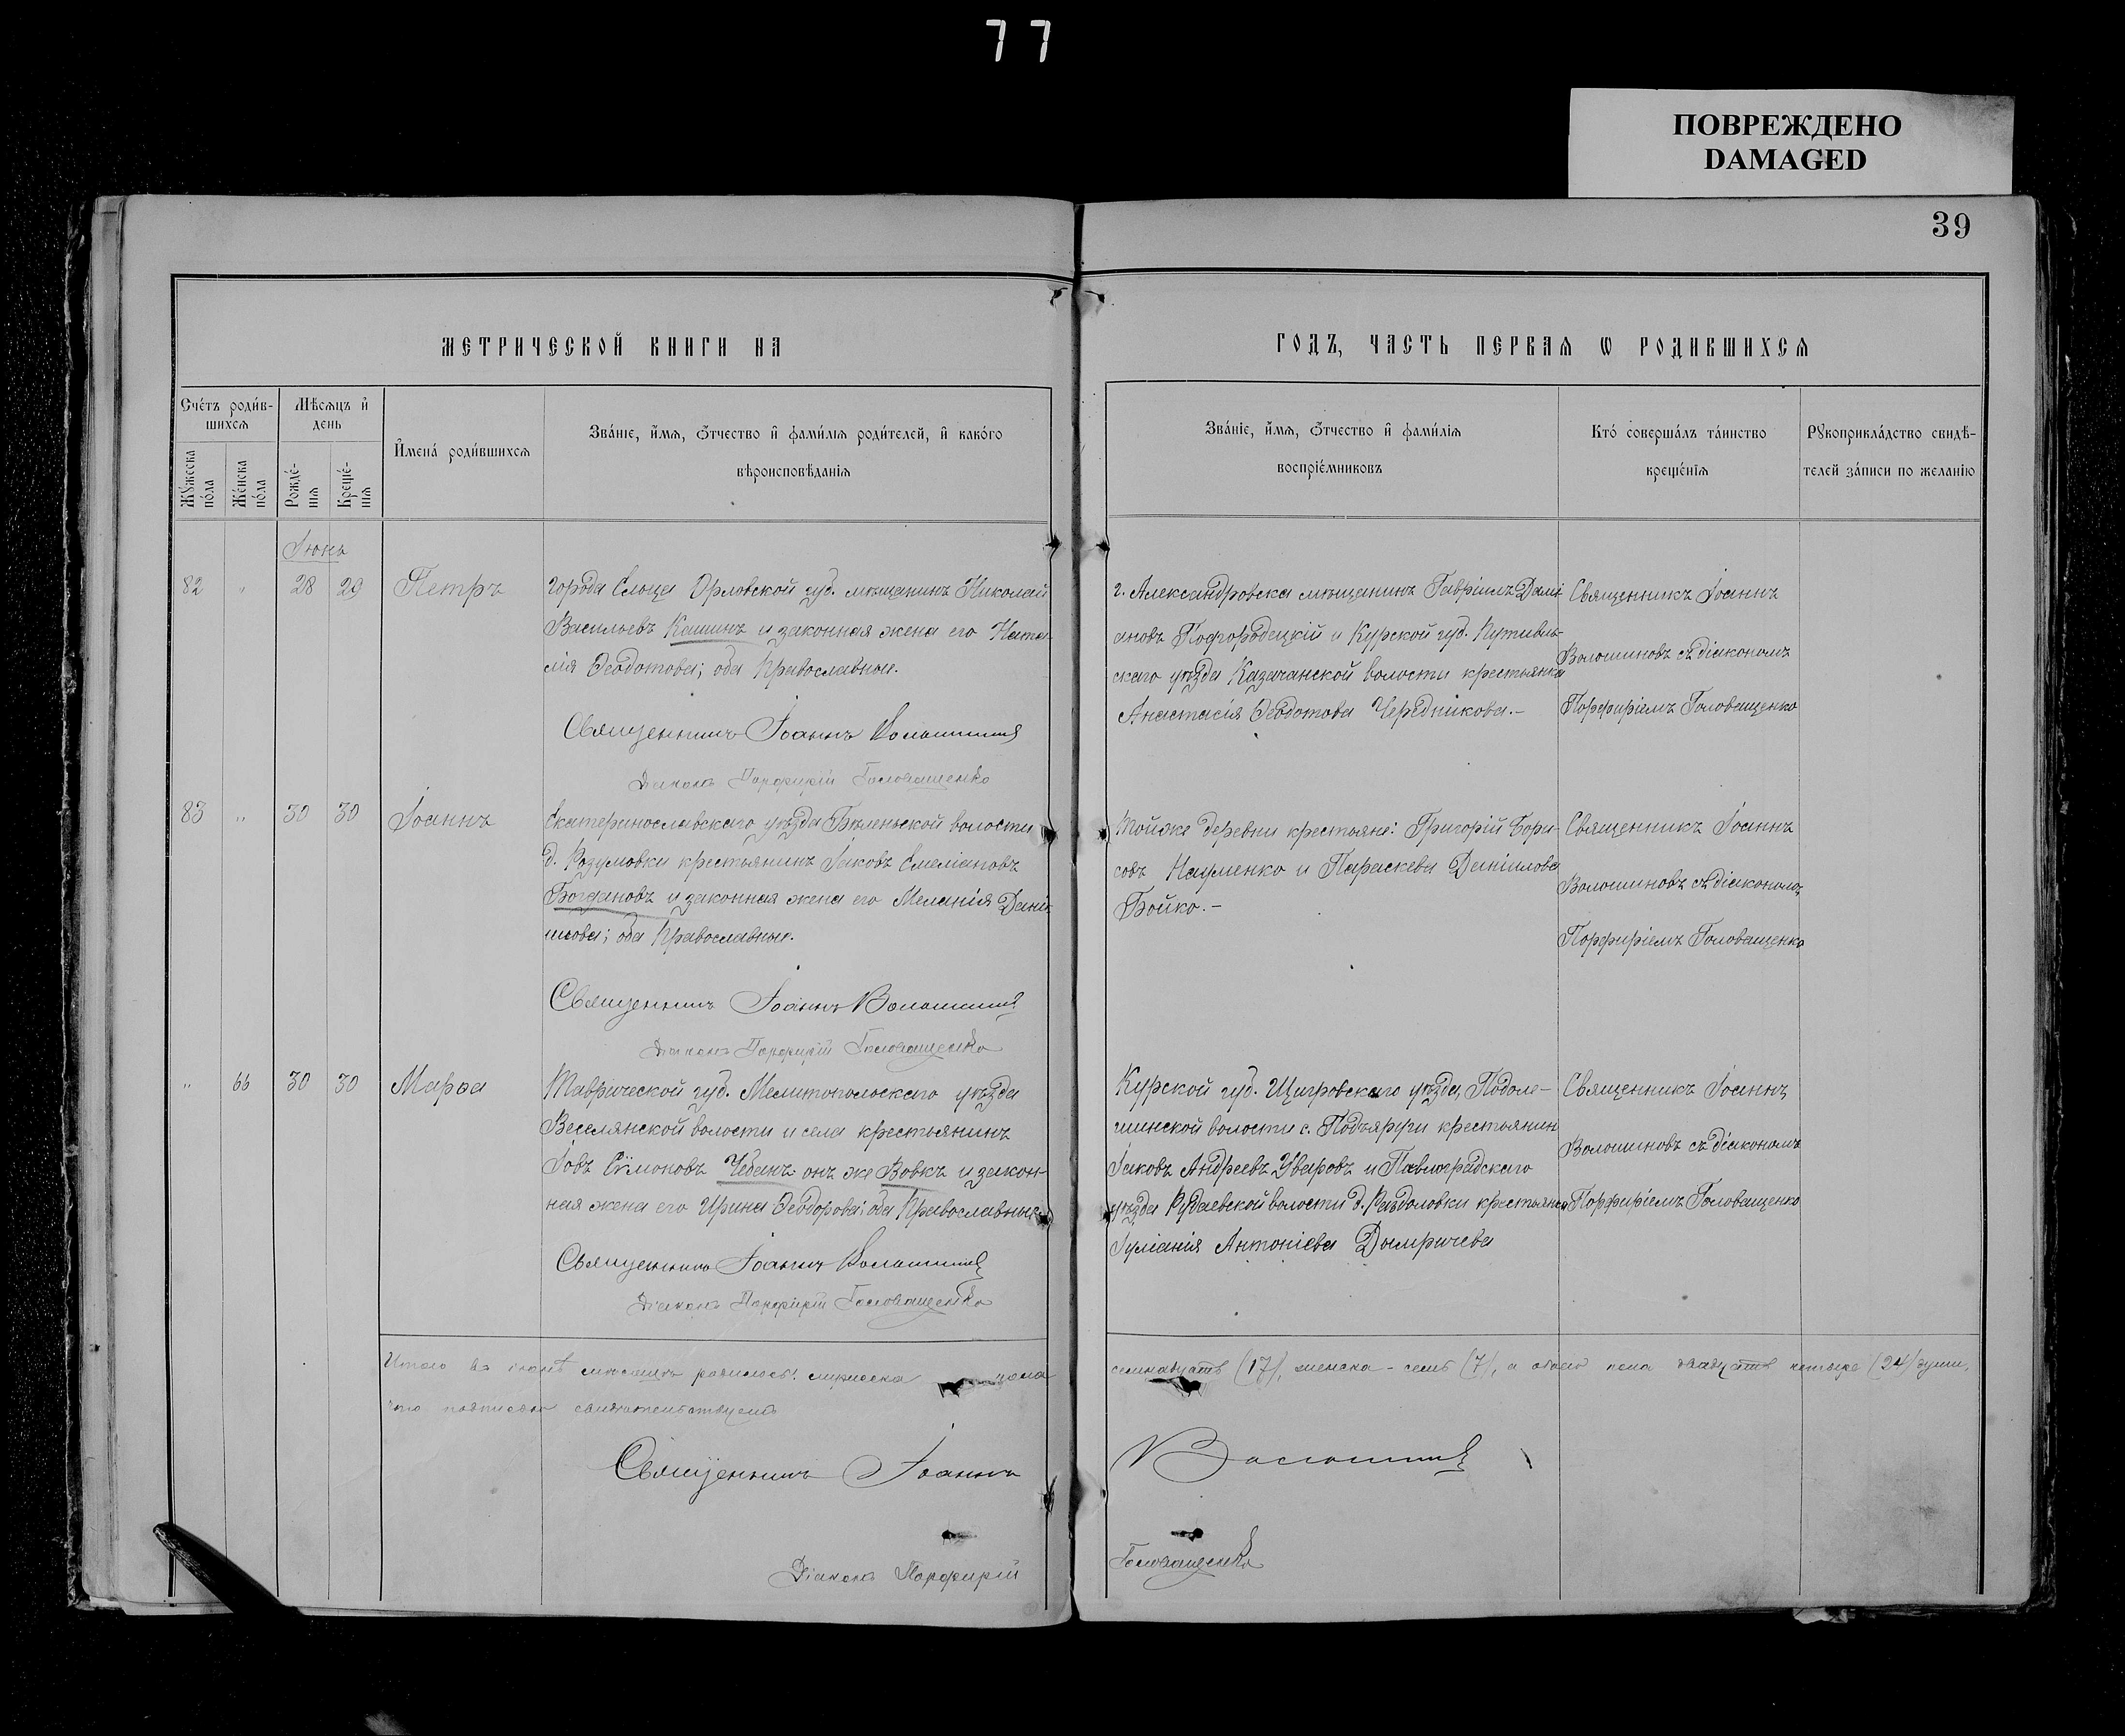 77
ПОВРЕЖДЕНО
DAMAGED
39
МЕТРИЧЕСКОЙ КНИГИ НА
ГОДЪ, ЧАСТЬ ПЕРВАЯ Ѡ РОДИВШИХСЯ
Счетъ родив-
шихся
Мѣсяцъ и
день
Мужеска
пола
Женска
пола
Рожде-
нія
Креще-
нія
Имена родившихся
Званіе, имя, отчество и фамилія родителей, и какого
вѣроисповѣданія
Званіе, имя, отчество и фамилія
воспріемниковъ
Кто совершалъ таинство
крещенія
Рукоприкладство свидѣ-
телей записи по желанію
Іюнь
82 " 28 29 Петръ
города Ельца Орловской губ. мѣщанинъ Николай
Васильевъ Кашинъ и законная жена его Ната-
лія Ѳеодотова; оба Православные.
Священникъ Іоаннъ Волошиновъ
Діаконъ Порфирій Головащенко
г. Александровска мѣщанинъ Гавріилъ Даміа-
ановъ Подгородецкій и Курской губ. Путивль-
скаго уѣзда Казачанской волости крестьянка
Анастасія Ѳеодотова Чередникова.-
Священникъ Іоаннъ
Волошиновъ съ діакономъ
Порфиріемъ Головащенко
83 " 30 30 Іоаннъ
Екатеринославскаго уѣзда Бѣленьской волости
д. Розумовки крестьянинъ Іаковъ Емеліановъ
Богдановъ и законная жена его Меланія Дані-
илова; оба Православные.
Священникъ Іоаннъ Волошиновъ
Діаконъ Порфирій Головащенко
Тойже деревни крестьяне: Григорій Бори-
совъ Науменко и Параскева Даніилова
Бойко.-
Священникъ Іоаннъ
Волошиновъ съ діакономъ
Порфиріемъ Головащенко
" 66 30 30 Марѳа
Таврической губ. Мелитопольскаго уѣзда
Веселянской волости и села крестьянинъ
Іовъ Сѵмоновъ Чебанъ онъ же Вовкъ и закон-
ная жена его Ирина Ѳеодорова; оба Православные.
Священникъ Іоаннъ Волошиновъ
Діаконъ Порфирій Головащенко
Курской губ. Щигровскаго уѣзда, Подоле-
шинской волости с. Подъяруги крестьянин
Іаковъ Андреевъ Уваровъ и Павлоградскаго
уѣзда Рудаевской волости д. Раздоловки крестьянка
Іуліанія Антоніева Дымричева
Священникъ Іоаннъ
Волошиновъ съ діакономъ
Порфиріемъ Головащенко
Итого въ іюнѣ мѣсяцѣ родилось: мужеска пола
семнадцать (17), женска - семь (7), а обоего пола двадцать четыре (24) души,
что подписомъ свидѣтельствуемъ
Священникъ Іоаннъ
Волошиновъ
Діаконъ Порфирій
Головащенко